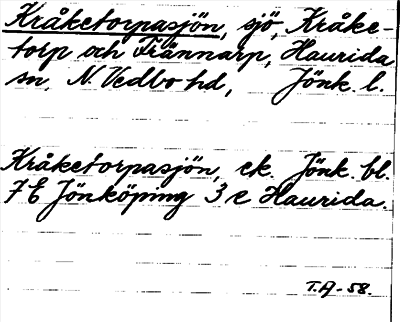 Kråketorpasjön, sjö, Kråke-
torp och Frännarp, Haurida
sn, N. Vedbo hd, Jönk. l.
Kråketorpasjön, ek. Jönk. bl.
7 E Jönköping 3 e Haurida.
T.A-58.